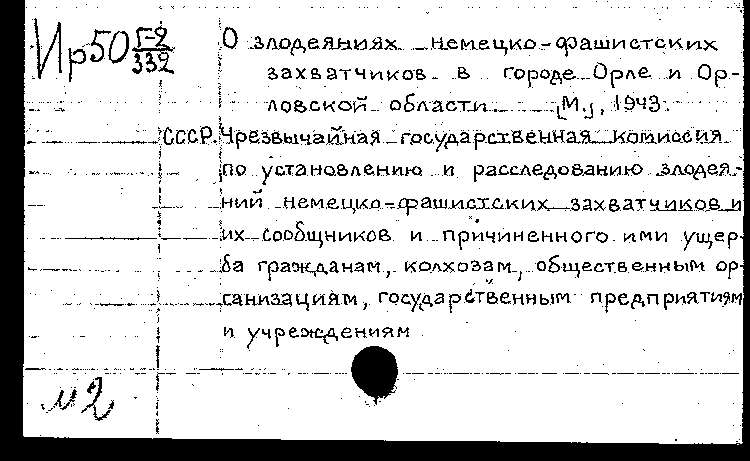 Ир50 Г-2/332
О злодеяниях немецко-фашистских
захватчиков в городе Орле и Ор-
ловской области [М.], 1943.
СССР. Чрезвычайная государственная комиссия
по установлению и расследованию злодея-
ний немецко-фашистских захватчиков и
их сообщников и причиненного ими ущер-
ба гражданам, колхозам, общественным ор-
ганизациям, государственным предприятиям
и учреждениям
м2